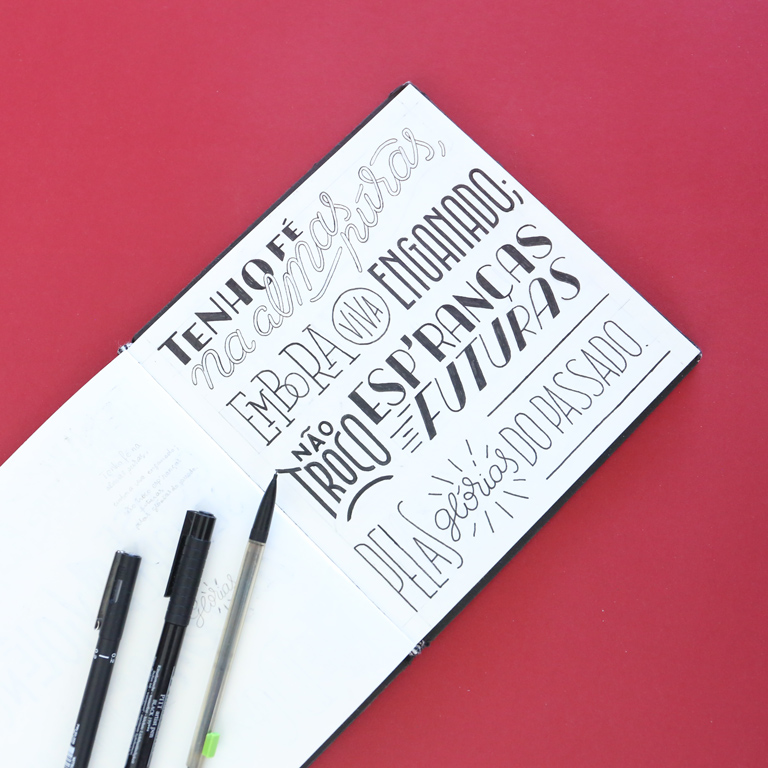 TENHO FÉ
na almas puras,
EMBORA VIVA ENGANADO;
NÃO TROCO ESP'RANÇAS
FUTURAS
PELAS glórias DO PASSADO.
glórias
0.2